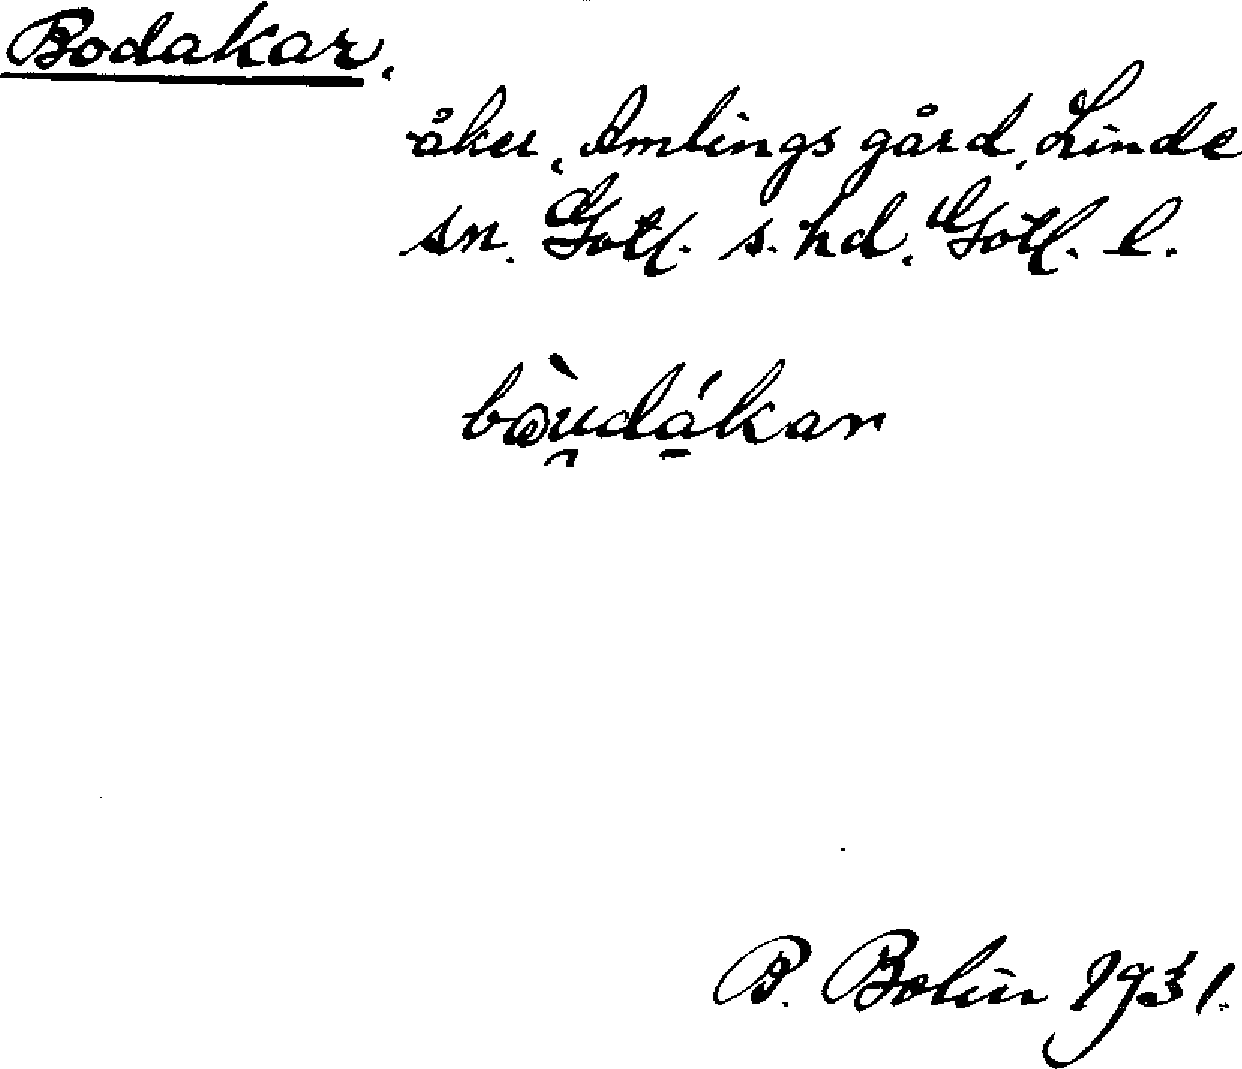 Bodakar.
åker, Amlings gård, Linde
sn. Gotl. s. hd. Gotl. l.
B. Bolin 1931.